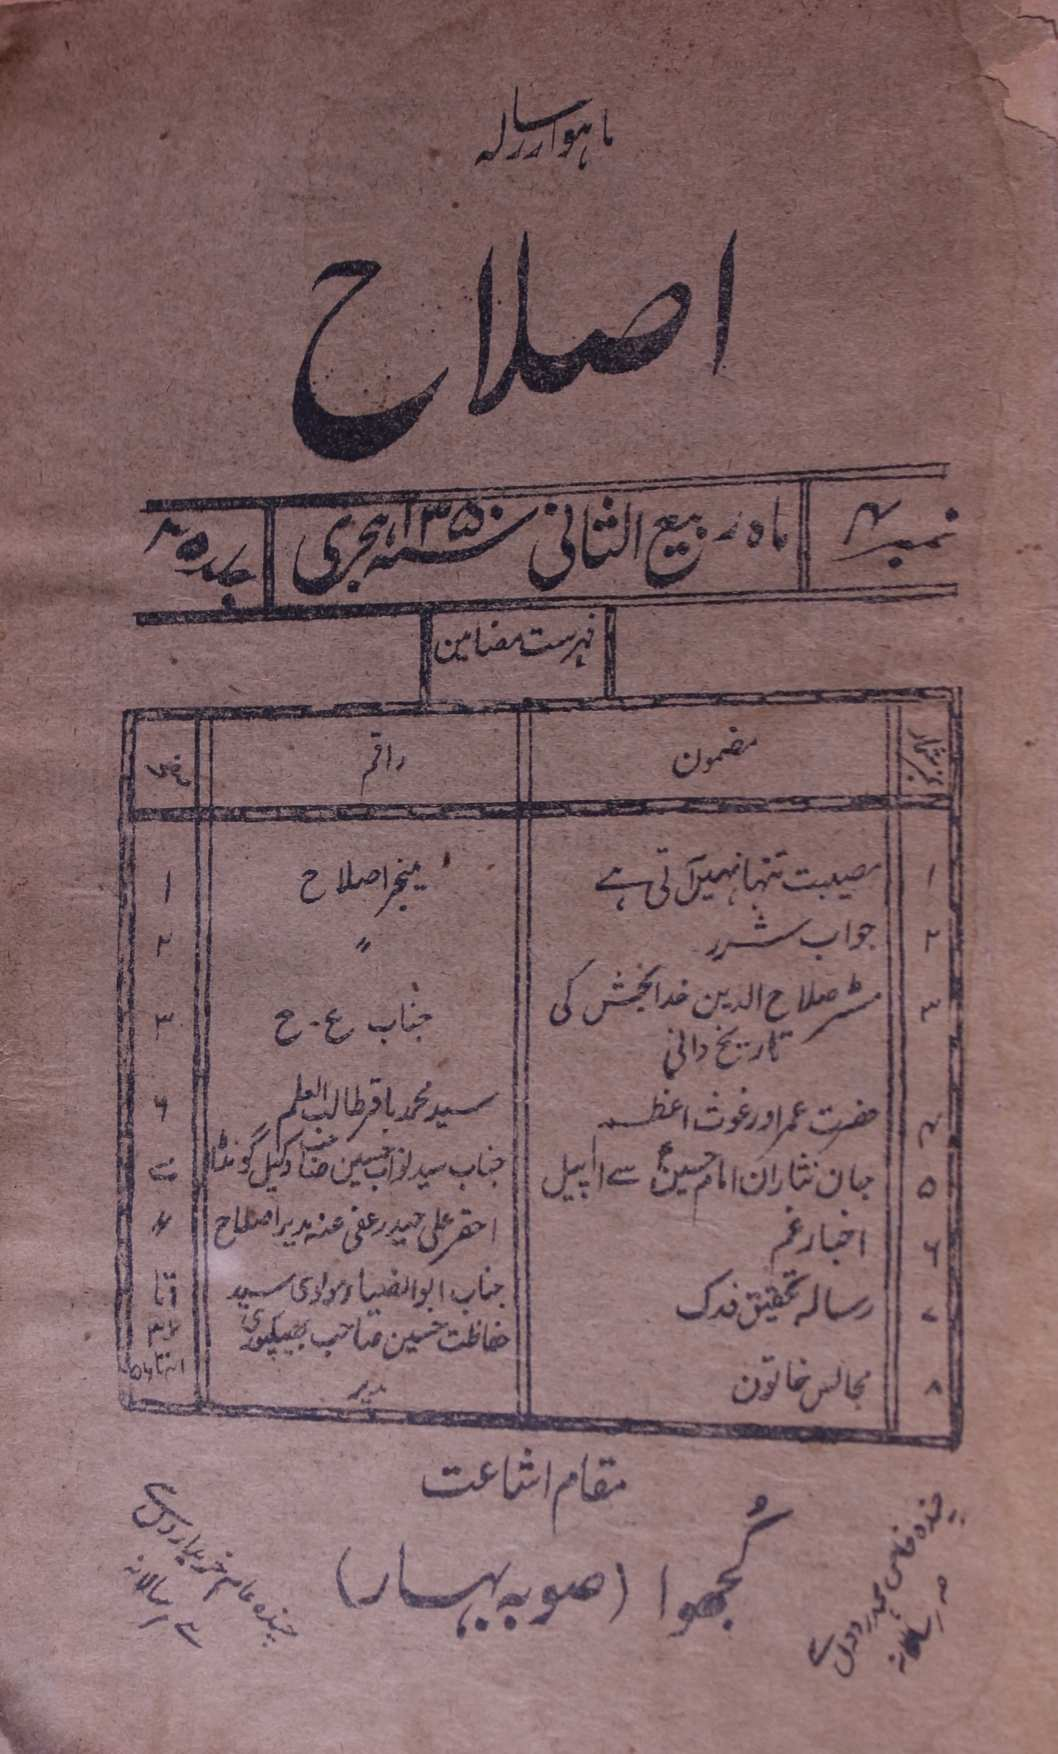 ماہوار رسالہ
اصلاح
نمبر ۴ ماہ ربیع الثانی سنہ ۱۳۵۰ ہجری جلد ۳۵
فہرست مضامین
نمبر شمار مضمون راقم صفحہ
۱ مصیبت تنہا نہیں آتی ہے منیجر اصلاح ۱
۲ جواب شرر 〃 ۲
۳ مسٹر صلاح الدین خدا بخش کی جناب ع۔ ح ۳
تاریخ دانی
۴ حضرت عمر اور غوث اعظم سید محمد باقر طالب العلم ۶
۵ جان نثاران امام حسینؑ سے اپیل جناب سید نواب حسین صاحب وکیل گونڈا
۶ اخبار غم احقر علی حیدر عفی عنہ مدیر اصلاح
۷ رسالہ تحقیق فدک جناب ابو الضیاء مولوی سید
حفاظت حسین صاحب بھیکپوری
۸ مجالس خاتون مدیر
مقام اشاعت
کُجھوا (صوبہ بہار)
چندہ خاص ہمدردوں سے
سالانہ
چندہ عام خریداروں سے
سالانہ